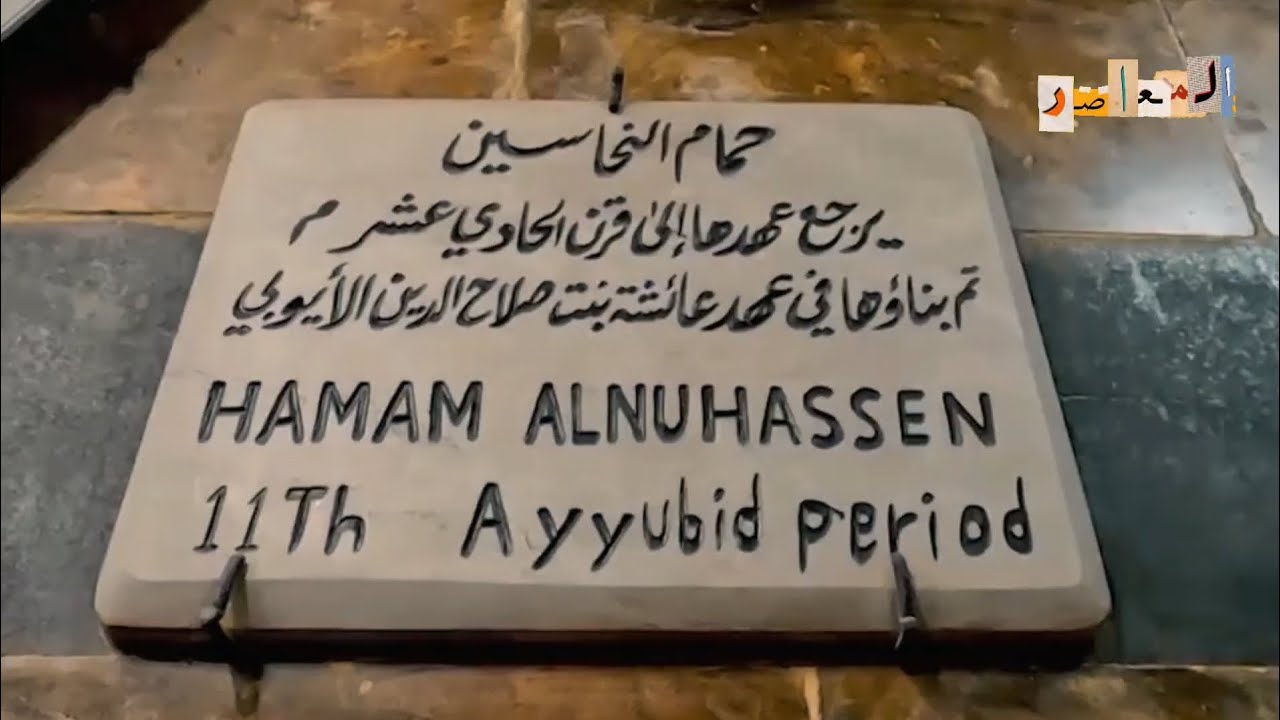 المعاصر
حمام النحاسين
يرجع عهدها إلى قرن الحادي عشر م
تم بناؤها في عهد عائشة بنت صلاح الدين الأيوبي
HAMAM ALNUHASSEN
11Th Ayyubid period